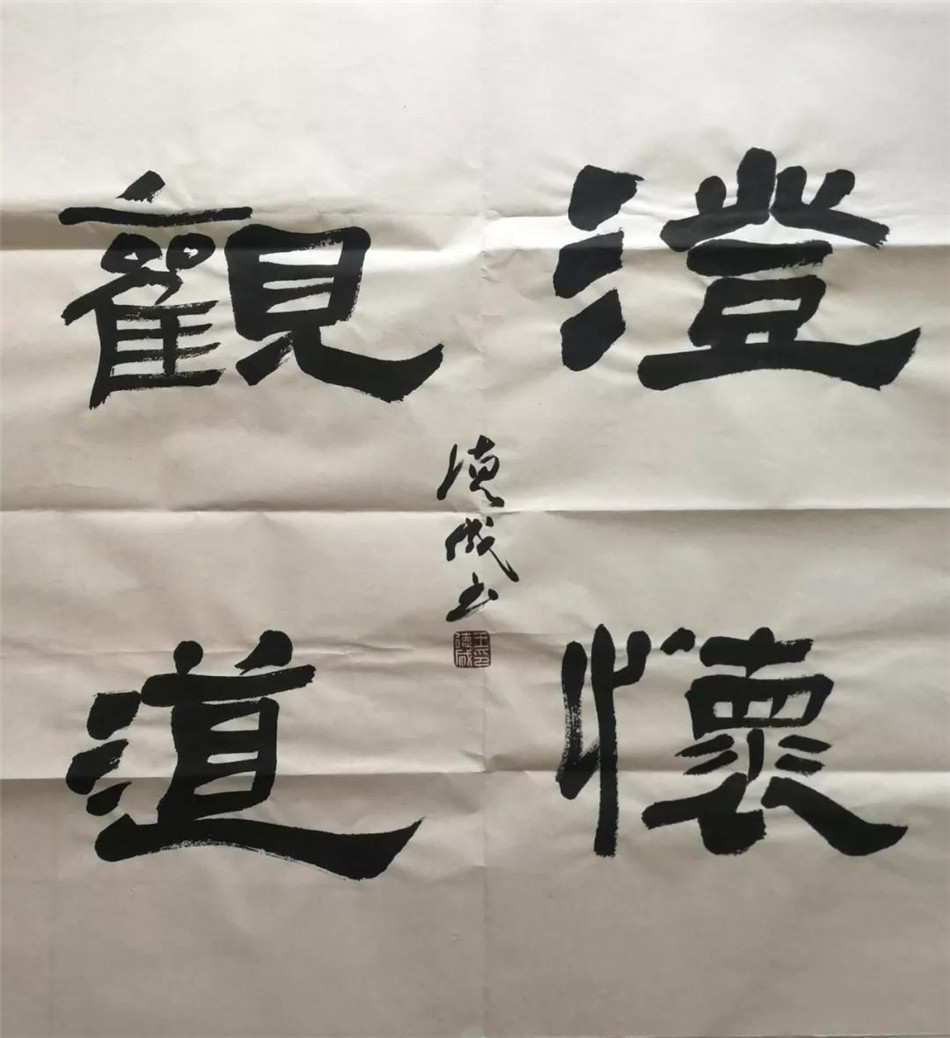 澄懷
觀道
德成书
王印德成